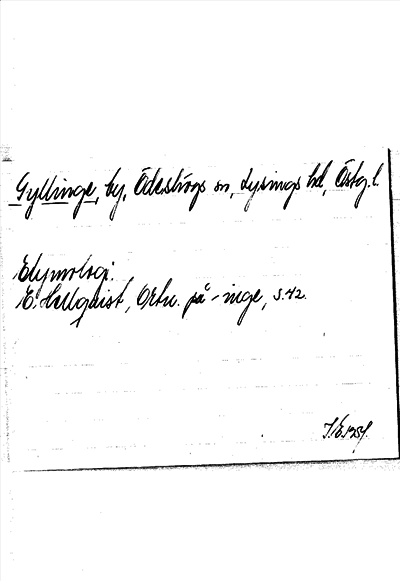 Gyllinge, by, Ödeshögs sn, Lysings hd, Östg. l.
Etymologi:
E. Hellquist, Ortn. på -inge, s. 42.